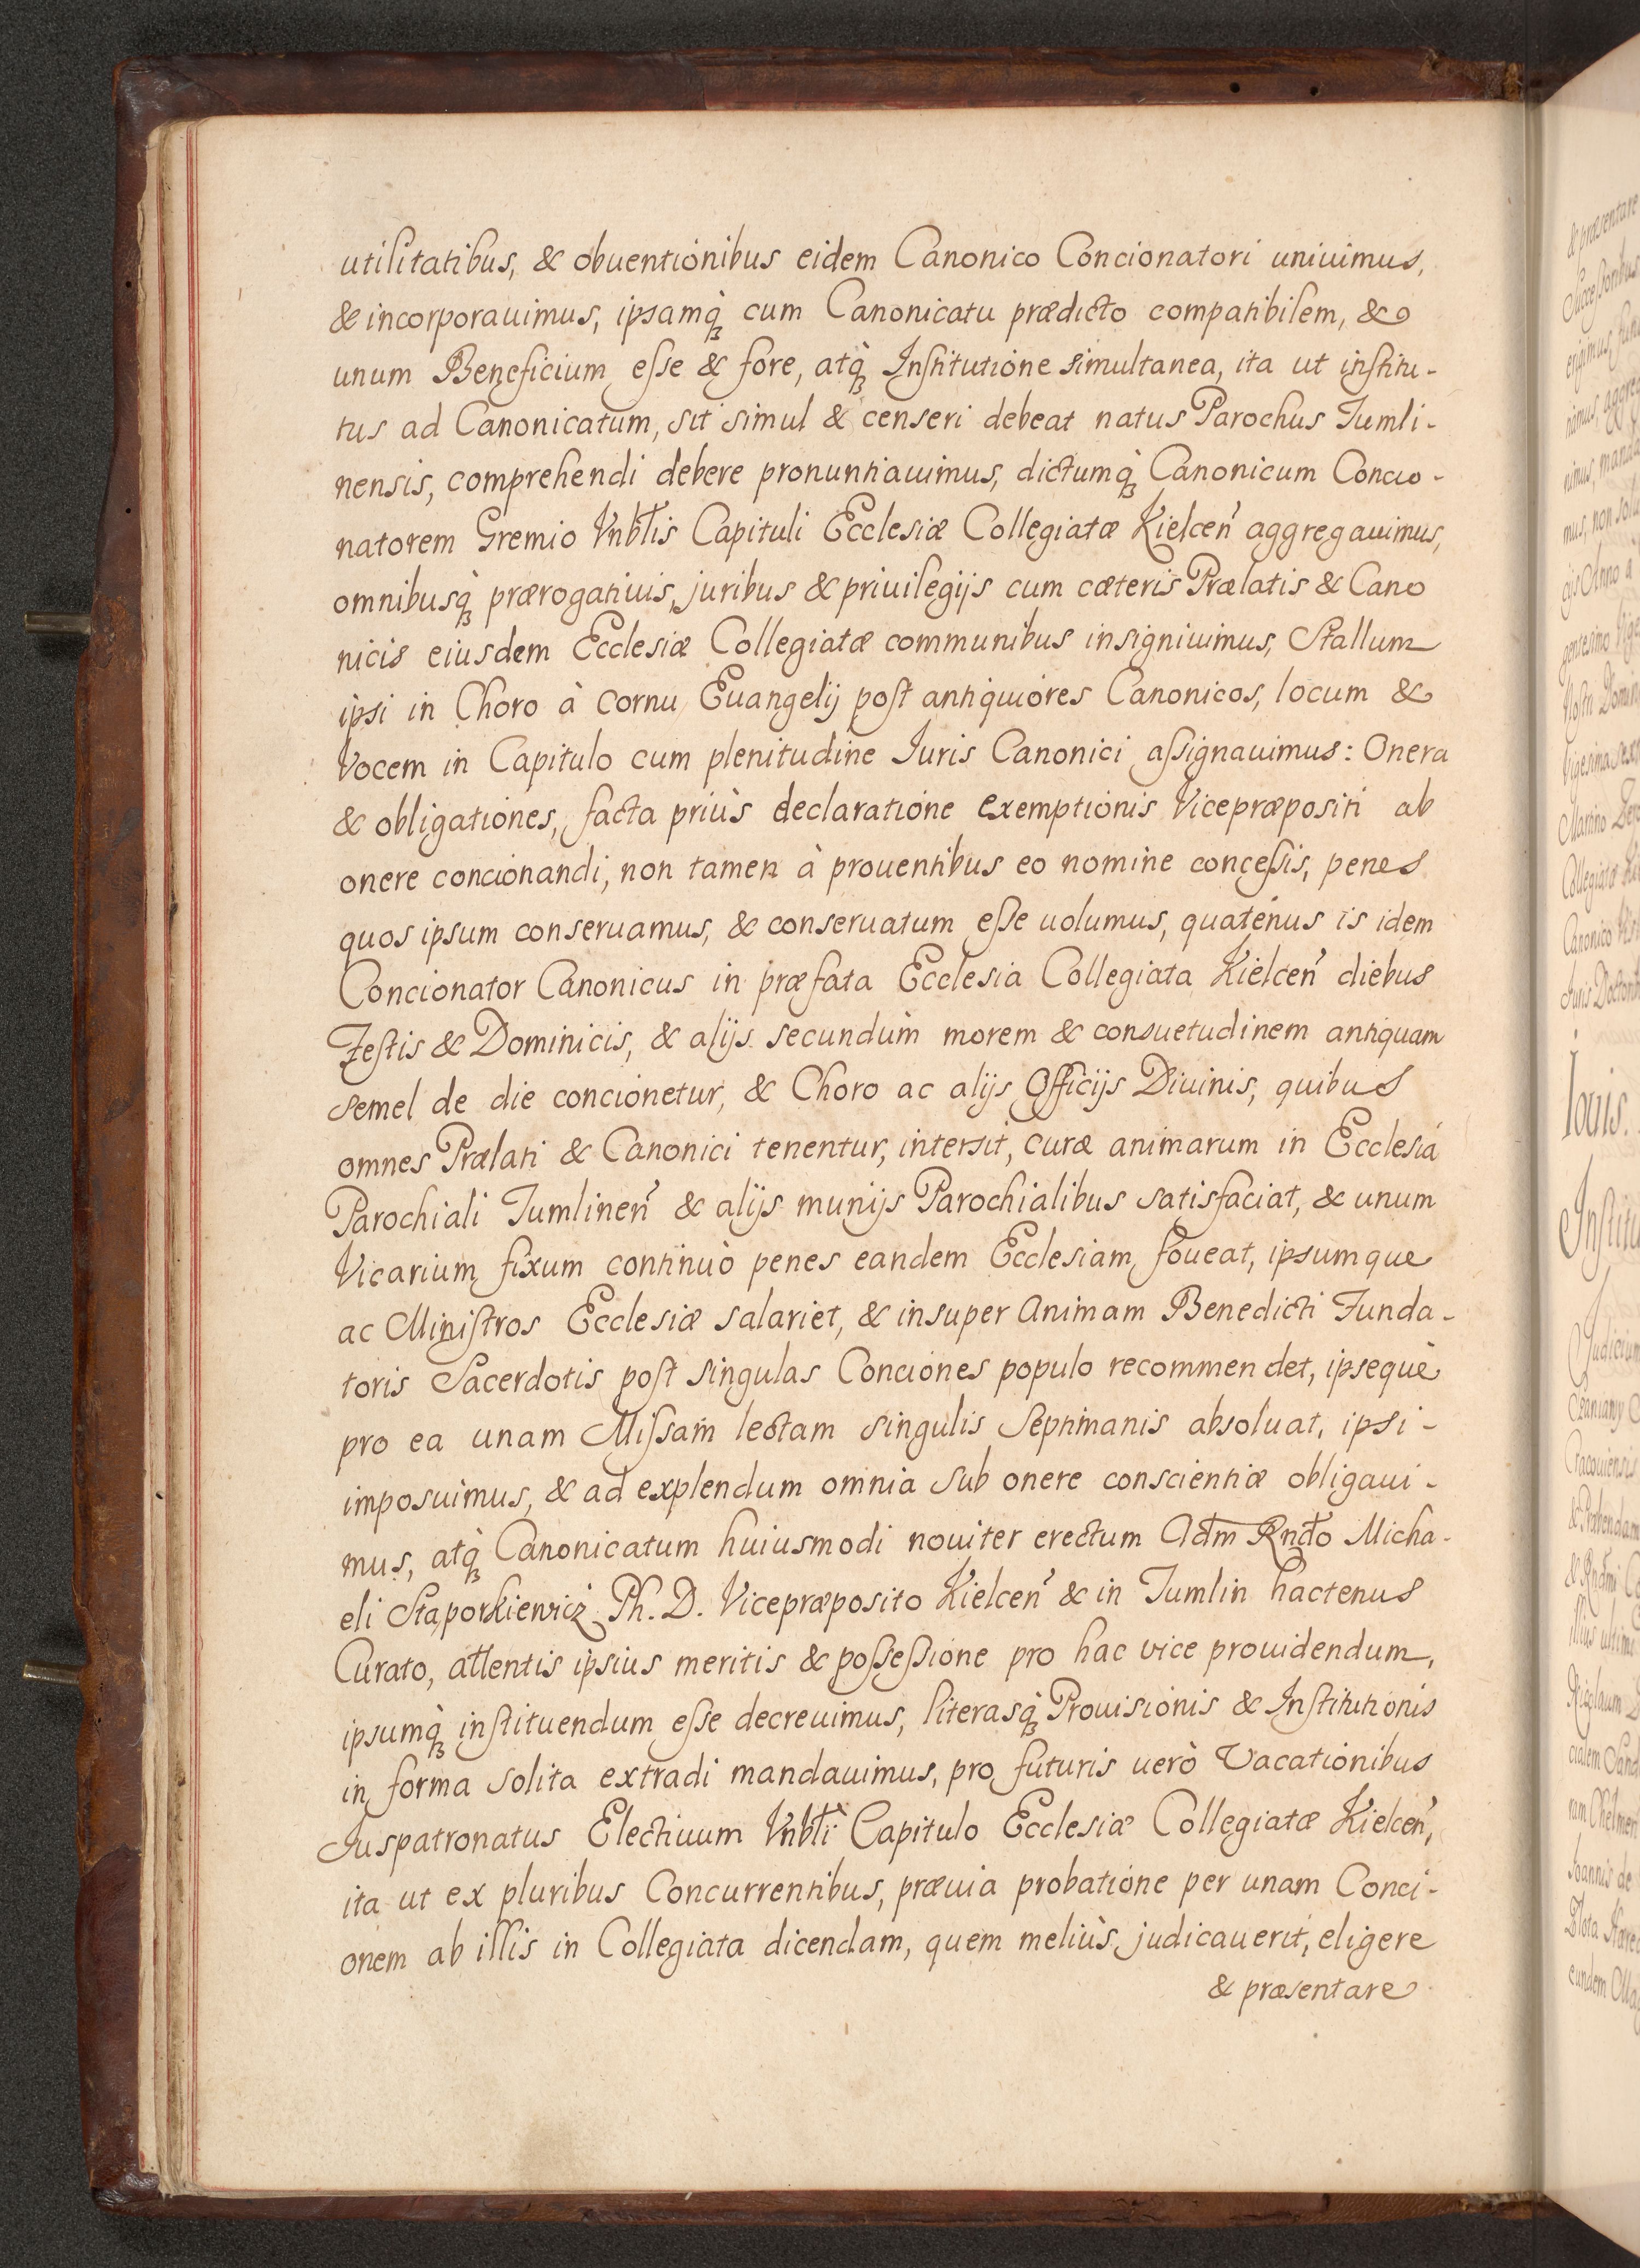 utilitatibus, & obuentionibus eidem Canonico Concionatori uniuimus,
& incorporauimus, ipsamq̀ꝫ cum Canonicatu prædicto compatibilem, &
unum Beneficium eſse & fore, atq̀ꝫ Inſtitutione simultanea, ita ut inſtitu-
tus ad Canonicatum, sit simul & censeri debeat natus Parochus Tumli-
nensis, comprehendi debere pronuntiauimus, dictumq̀ꝫ Canonicum Concio-
natorem Gremio Vnbl̃is Capituli Ecclesiæ Collegiatæ Kielceñ aggregauimus,
omnibusq̀ꝫ prærogatiuis, juribus & priuilegijs cum cæteris Prælatis & Cano
nicis eiusdem Ecclesiæ Collegiatæ communibus insigniuimus, Stallum
ipsi in Choro à cornu Euangelij poſt antiquiores Canonicos, locum &
Vocem in Capitulo cum plenitudine Iuris Canonici aſsignauimus: Onera
& obligationes, facta priùs declaratione exemptionis Vicepræpositi ab
onere concionandi, non tamen à prouentibus eo nomine conceſsis, penes
quos ipsum conseruamus, & conseruatum eſse uolumus, quatenus is idem
Concionator Canonicus in præfata Ecclesia Collegiata Kielceñ diebus
Feſtis & Dominicis, & alijs secundum morem & consuetudinem antiquam
semel de die concionetur, & Choro ac alijs Officijs Diuinis, quibus
omnes Prælati & Canonici tenentur, intersit, curæ animarum in Ecclesia
Parochiali Tumlineñ & alijs munijs Parochialibus satisfaciat, & unum
Vicarium fixum continuò penes eandem Ecclesiam foueat, ipsumque
ac Miniſtros Ecclesiæ salariet, & insuper animam Benedicti Funda-
toris Sacerdotis poſt singulas Conciones populo recommendet, ipseque
pro ea unam Miſsam lectam singulis Septimanis absoluat, ipsi-
imposuimus, & ad explendum omnia sub onere conscientiæ obligaui-
mus, atq̀ꝫ Canonicatum huiusmodi nouiter erectum Adm̃ Rnd̃o Micha-
eli Staporkiewicz Ph. D. Vicepræposito Kielceñ & in Tumlin hactenus
Curato, attentis ipsius meritis & poſseſsione pro hac vice prouidendum,
ipsumq̀ꝫ inſtituendum eſse decreuimus, literasq̀ꝫ Prouisionis & Inſtitutionis
in forma solita extradi mandauimus, pro futuris uerò Vacationibus
Iuspatronatus Electiuum Vnbl̃i Capitulo Ecclesiæ Collegiatæ Kielceñ,
ita ut ex pluribus Concurrentibus, præuia probatione per unam Conci-
onem ab illis in Collegiata dicendam, quem meliùs judicauerit, eligere
& præsentare